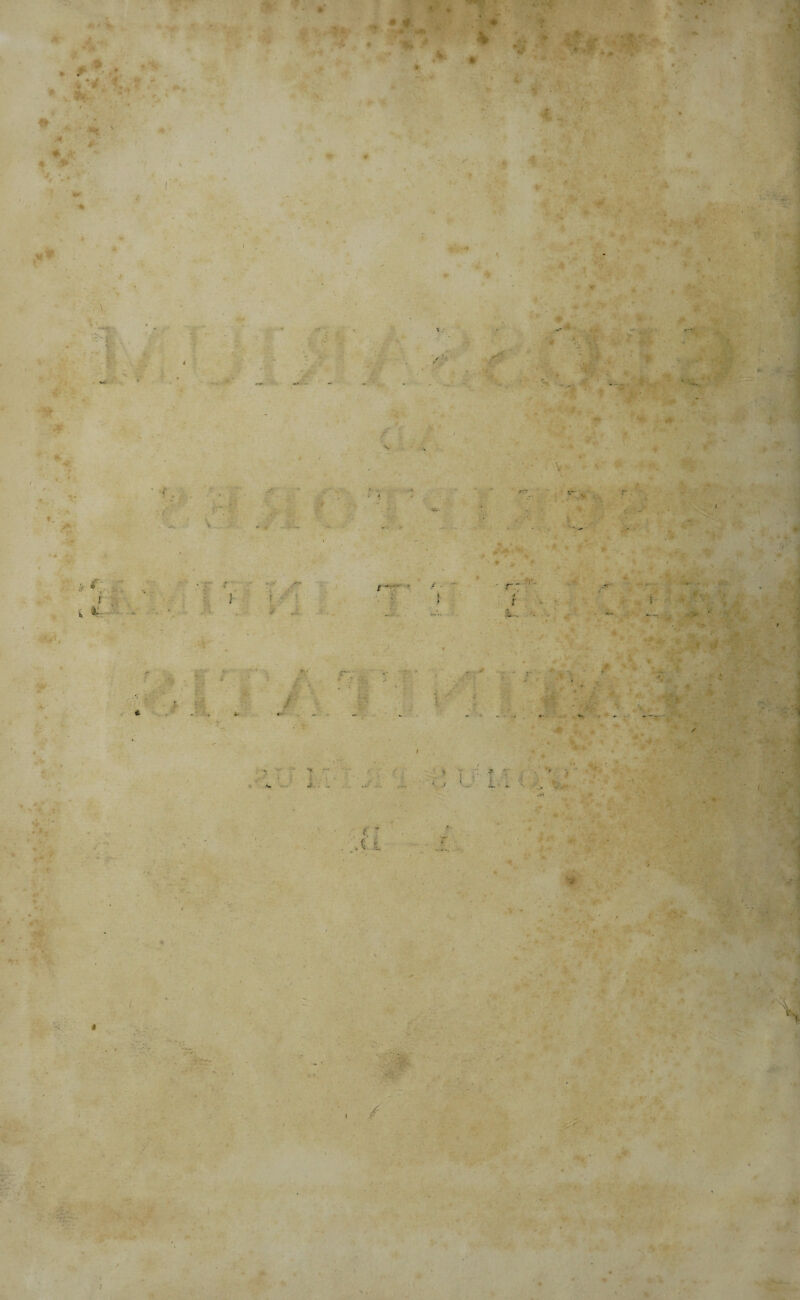 GLOSSARIUM
AD
SCRIPTORES
MEDIÆ ET INFIMÆ
LATINITATIS.
TOMUS PRIMUS.
A — B.